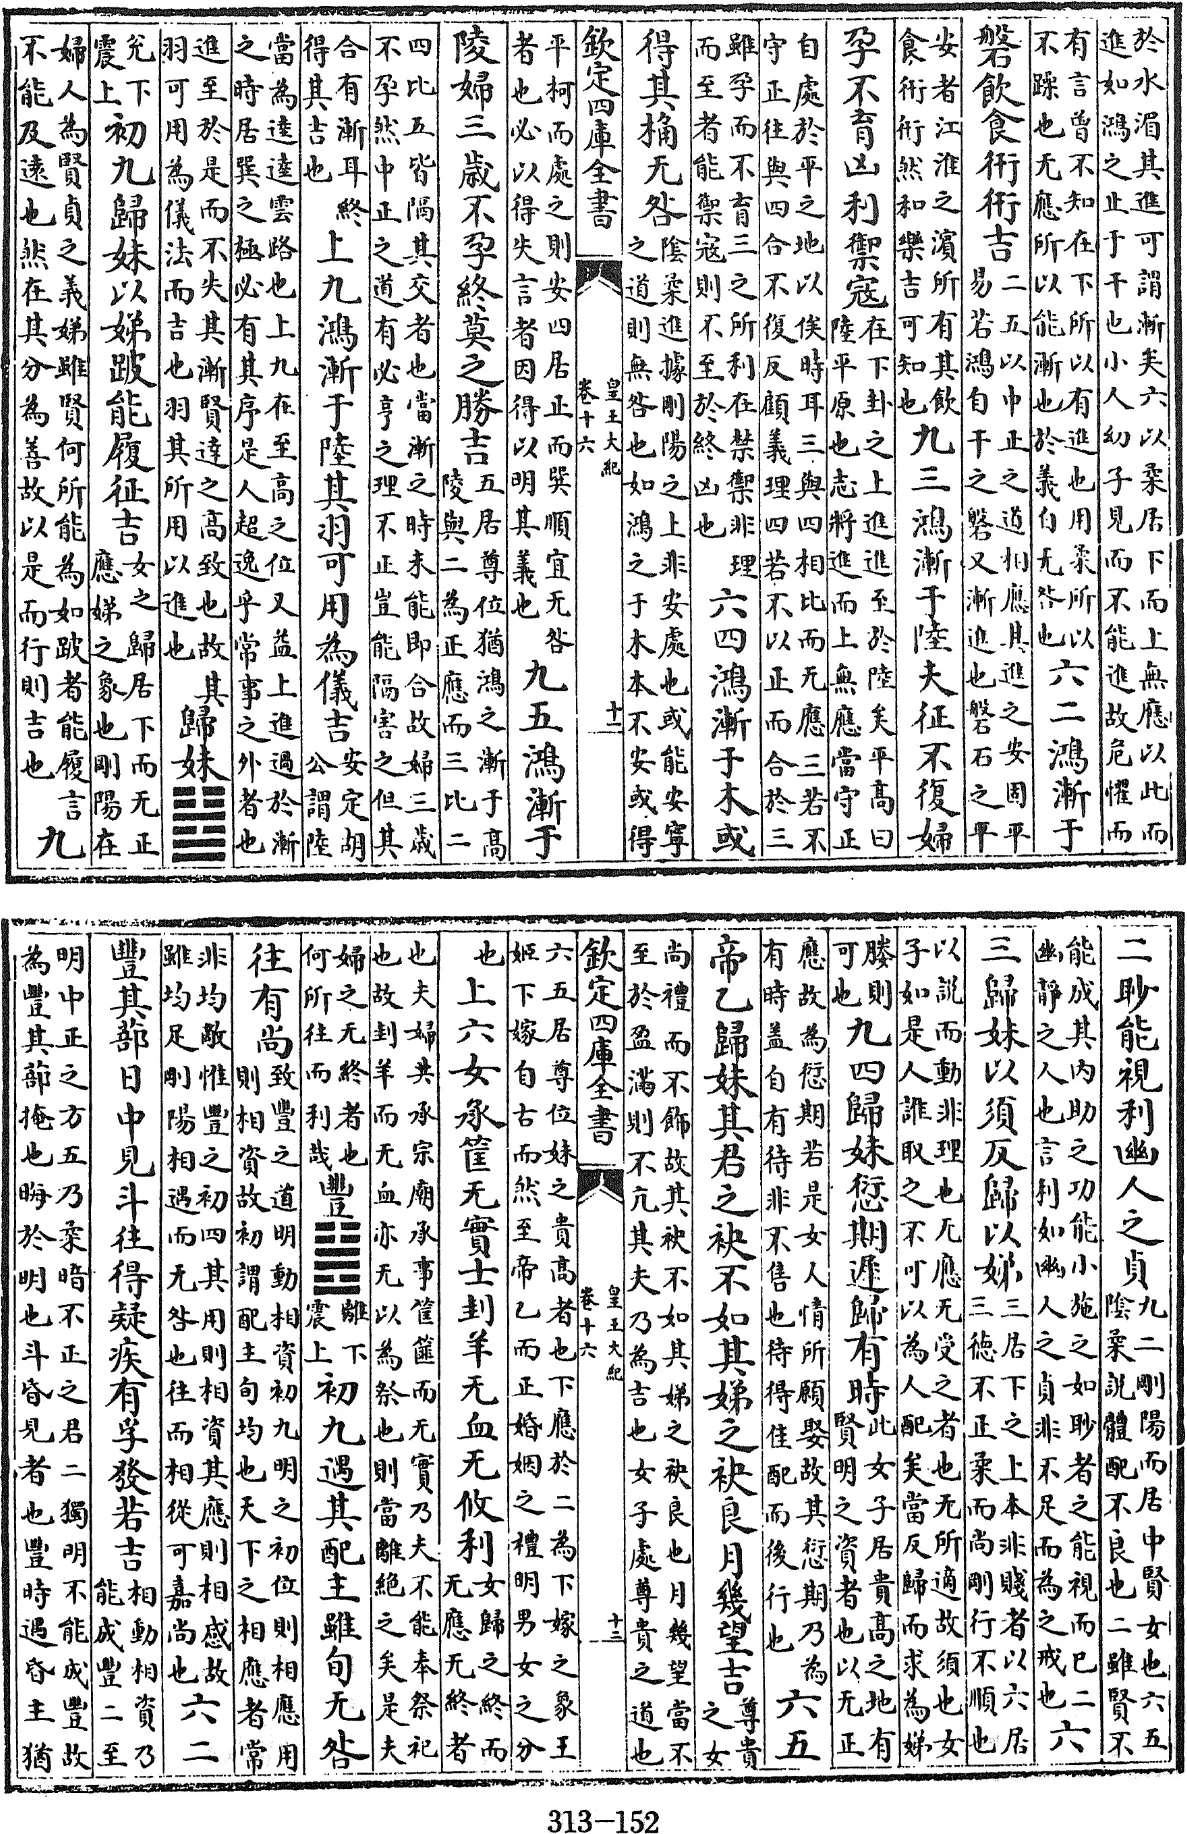 於水湄其進可謂漸矣六以柔居下而上無應以此而
進如鴻之止于干也小人幼子見而不能進故危懼而
有言曽不知在下所以有進也用柔所以
不躁也无應所以能漸也於義自无咎也
六二鴻漸于
磐飲食衎衎吉
二五以中正之道相應其進之安固平
易若鴻自干之磐又漸進也磐石之平
安者江淮之濱所有其飲
食衎衎然和樂吉可知也
九三鴻漸于陸夫征不復婦
孕不育凶利禦寇
在下卦之上進進至於陸矣平高曰
陸平原也志將進而上無應當守正
自處於平之地以俟時耳三與四相比而无應三若不
守正往與四合不復反顧義理四若不以正而合於三
雖孕而不育三之所利在禁禦非理
而至者能禦寇則不至於終凶也
六四鴻漸于木或
得其桷无咎
陰柔進據剛陽之上非安處也或能安寧
之道則無咎也如鴻之于木本不安或得
欽定四庫全書
皇王大紀
卷十六
十二
平柯而處之則安四居正而巽順宜无咎
者也必以得失言者因得以明其義也
九五鴻漸于
陵婦三歳不孕終莫之勝吉
五居尊位猶鴻之漸于高
陵與二為正應而三比二
四比五皆隔其交者也當漸之時未能即合故婦三歳
不孕然中正之道有必亨之理不正豈能隔害之但其
合有漸耳終
得其吉也
上九鴻漸于陸其羽可用為儀吉
安定胡
公謂陸
當為逵逵雲路也上九在至高之位又益上進過於漸
之時居巽之極必有其序是人超逸乎常事之外者也
進至於是而不失其漸賢逹之高致也故其
羽可用為儀法而吉也羽其所用以進也
歸妹䷵
兌下
震上
初九歸妹以娣跛能履征吉
女之歸居下而无正
應娣之象也剛陽在
婦人為賢貞之義娣雖賢何所能為如跛者能履言
不能及遠也然在其分為善故以是而行則吉也
九
二眇能視利幽人之貞
九二剛陽而居中賢女也六五
陰柔說體配不良也二雖賢不
能成其內助之功能小施之如眇者之能視而已二
幽靜之人也言利如幽人之貞非不足而為之戒也
六
三歸妹以須反歸以娣
三居下之上本非賤者以六居
三德不正柔而尚剛行不順也
以說而動非理也无應无受之者也无所適故須也女
子如是人誰取之不可以為人配矣當反歸而求為娣
媵則
可也
九四歸妹愆期遲歸有時
此女子居貴高之地有
賢明之資者也以无正
應故為愆期若是女人情所願娶故其愆期乃為
有時盖自有待非不售也待得佳配而後行也
六五
帝乙歸妹其君之袂不如其娣之袂良月幾望吉
尊貴
之女
尚禮而不飾故其袂不如其娣之袂良也月幾望當不
至於盈滿則不亢其夫乃為吉也女子處尊貴之道也
欽定四庫全書
皇王大紀
卷十六
十三
六五居尊位妹之貴高者也下應於二為下嫁之象王
姬下嫁自古而然至帝乙而正婚姻之禮明男女之分
也
上六女承筐无實士刲羊无血无攸利
女歸之終而
无應无終者
也夫婦共承宗廟承事筐篚而无實乃夫不能奉祭祀
也故刲羊而无血亦无以為祭也則當離絶之矣是夫
婦之无終者也
何所往而利哉
豐䷶
離下
震上
初九遇其配主雖旬无咎
往有尚
致豐之道明動相資初九明之初位則相應用
則相資故初謂配主旬均也天下之相應者常
非均敵惟豐之初四其用則相資其應則相感故
雖均足剛陽相遇而无咎也往而相從可嘉尚也
六二
豐其蔀日中見斗往得疑疾有孚發若吉
相動相資乃
能成豐二至
明中正之方五乃柔暗不正之君二獨明不能成豐故
為豐其蔀掩也晦於明也斗昏見者也豐時遇昏主猶
313-152